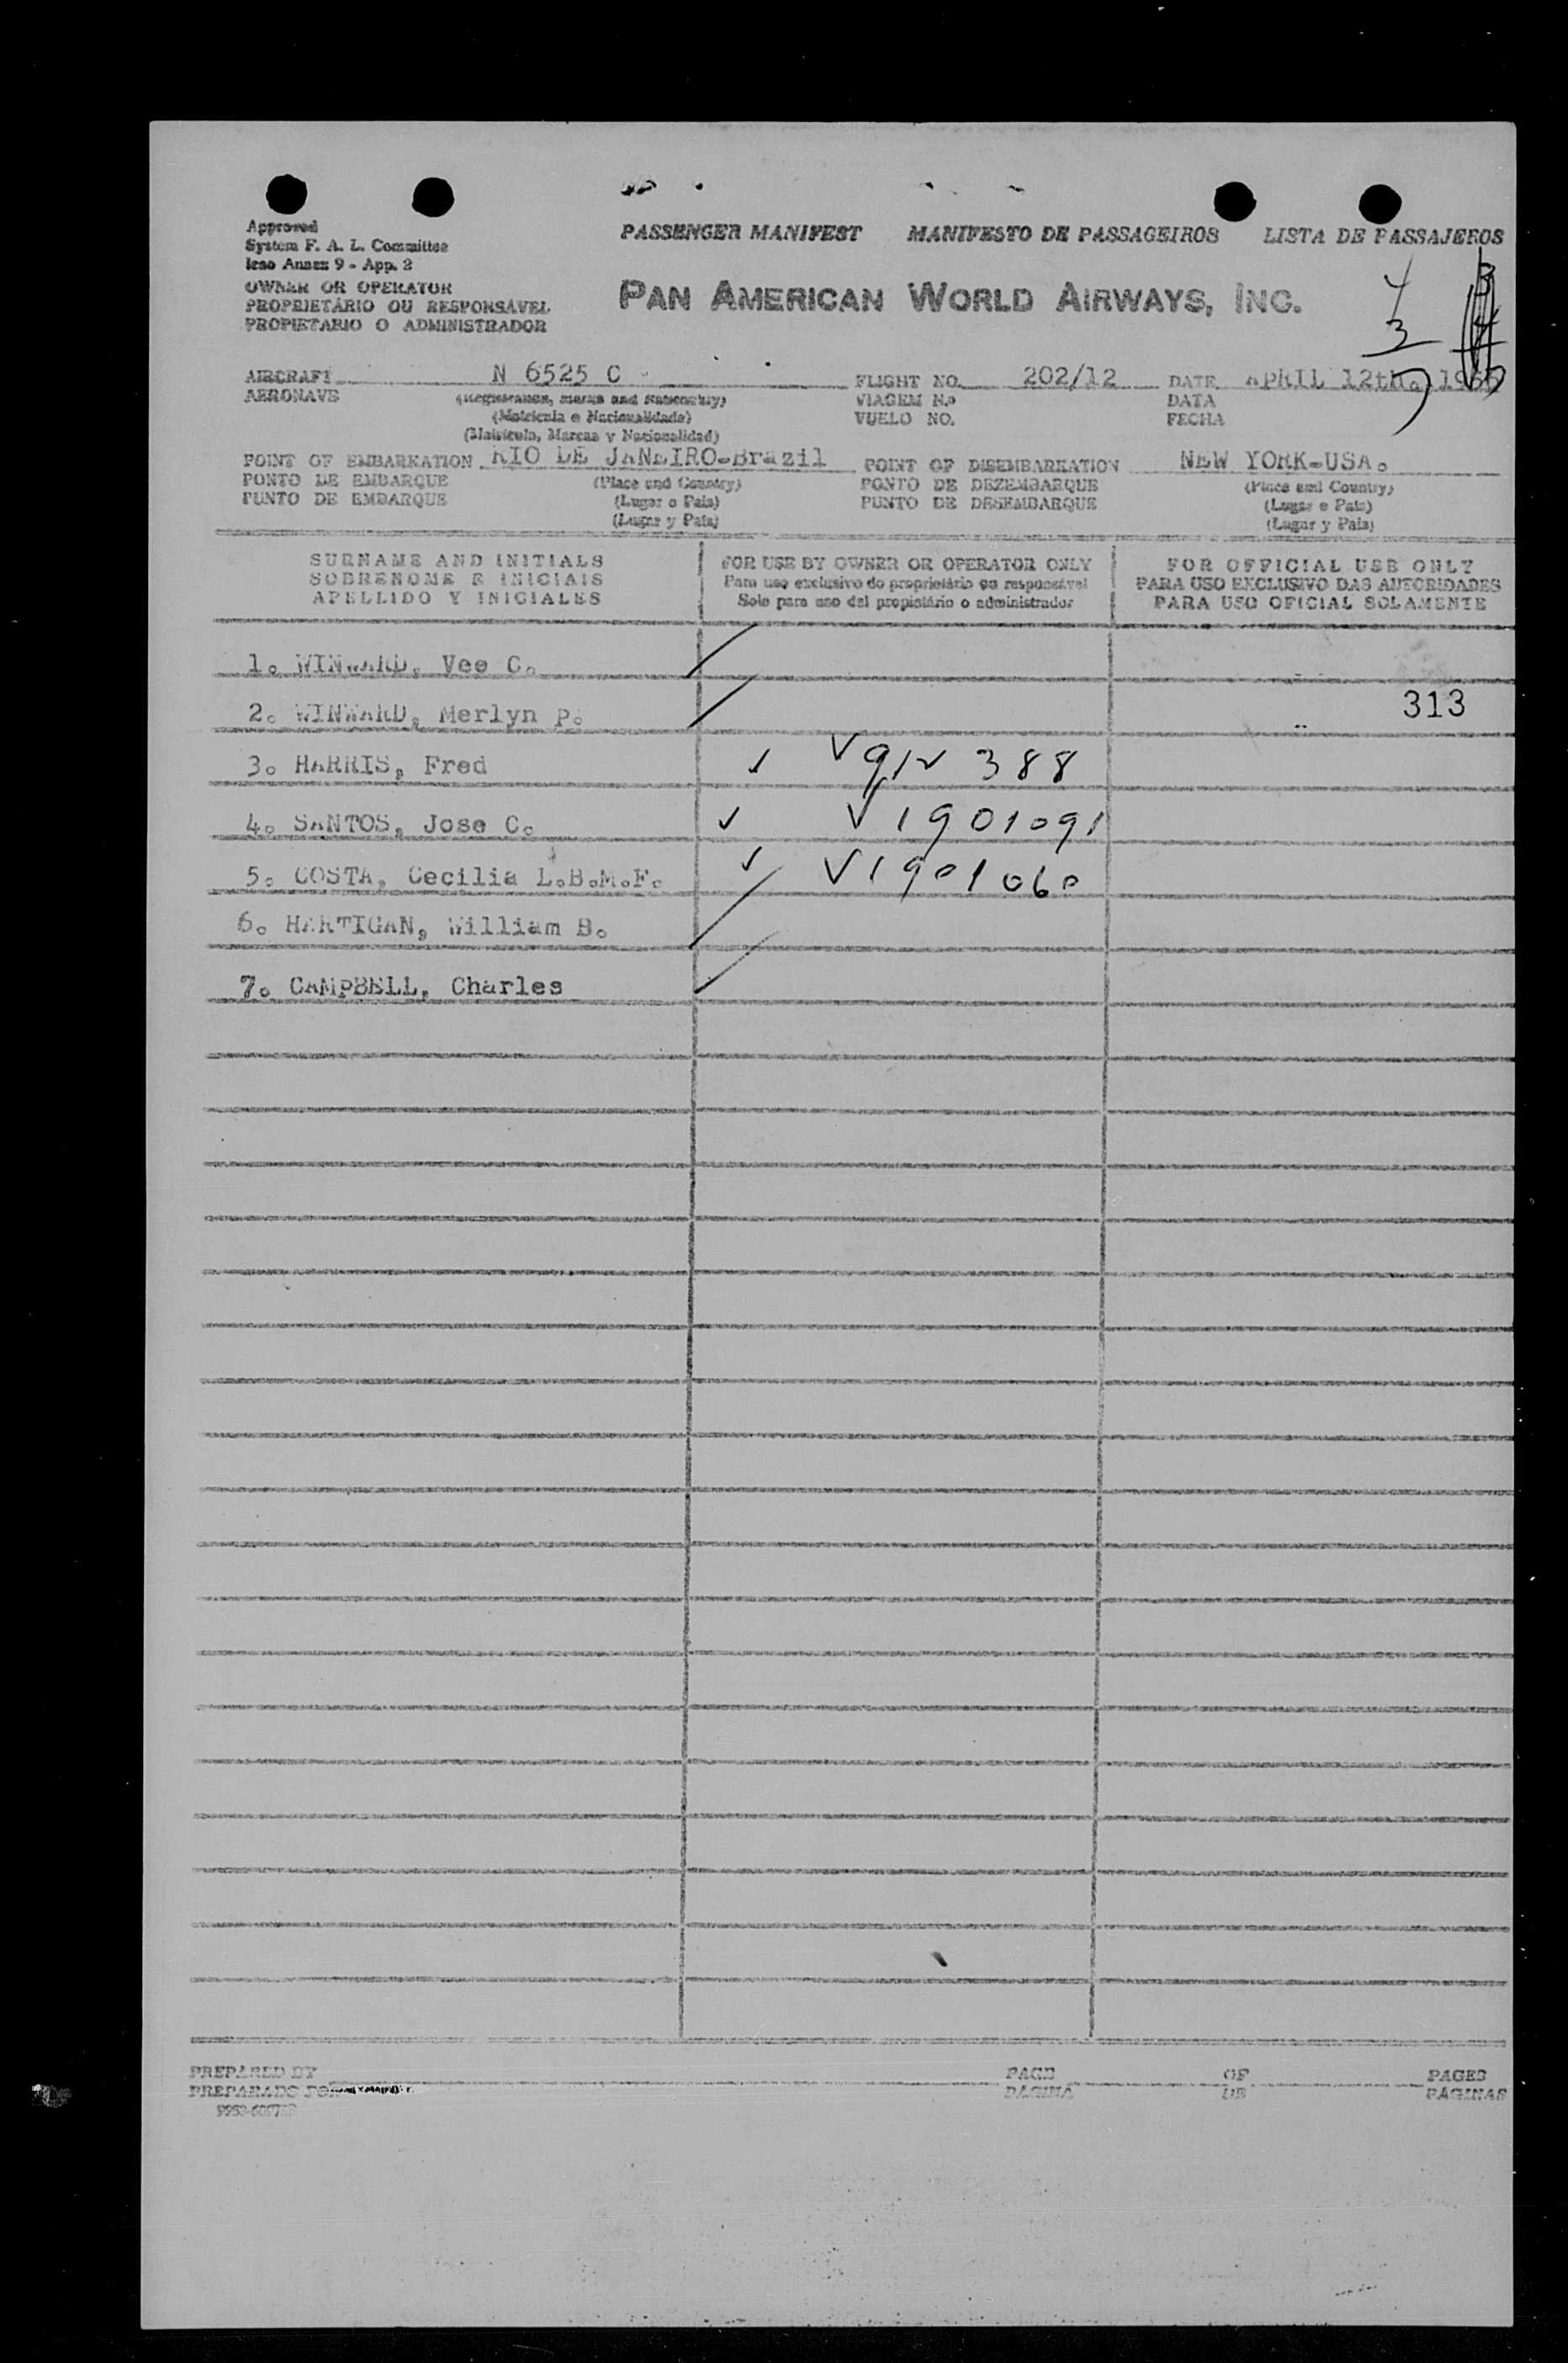 PASSENGER MANIFEST MANIFESTO DE PASSAGEIROS LISTA DE PASSAJEROS
Approved
System F. A. L. Committee
Icao Annex 9 - App. 2
OWNER OR OPERATOR
PROPRIETÁRIO OU RESPONSÁVEL
PROPIETARIO O ADMINISTRADOR
PAN AMERICAN WORLD AIRWAYS, INC.
4
3
7
AIRCRAFT N 6525 C FLIGHT NO. 202/12 DATE APRIL 12th.
AERONAVE (Registration, marks and Nationality) VIAGEM N.º DATA
(Matrícula e Nacionalidade) VUELO NO. FECHA
(Matrícula, Marcas y Nacionalidad)
POINT OF EMBARKATION RIO DE JANEIRO-Brazil POINT OF DISEMBARKATION NEW YORK-USA.
PONTO DE EMBARQUE (Place and Country) PONTO DE DEZEMBARQUE (Place and Country)
PUNTO DE EMBARQUE (Lugar e Pais) PUNTO DE DESEMBARQUE (Lugar e Pais)
(Lugar y Pais) (Lugar y Pais)
SURNAME AND INITIALS FOR USE BY OWNER OR OPERATOR ONLY FOR OFFICIAL USE ONLY
SOBRENOME E INICIAIS Para uso exclusivo do proprietário ou responsável PARA USO EXCLUSIVO DAS AUTORIDADES
APELLIDO Y INICIALES Solo para uso del propietário o administrador PARA USO OFICIAL SOLAMENTE
1. WINWARD, Vee C.
2. WINWARD, Merlyn P. 313
3. HARRIS, Fred ✓ V 912 388
4. SANTOS, Jose C. ✓ V 1901091
5. COSTA, Cecilia L.B.M.F. ✓ V 1901060
6. HARTIGAN, William B.
7. CAMPBELL, Charles
PREPARED BY PAGE OF PAGES
PREPARADO POR PÁGINA DE PÁGINAS